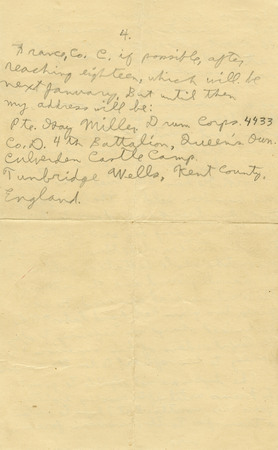 4.
France, Co. C. if possible, after
reaching eighteen, which will be
next January. But until then
my address will be:
Pte. Hay Miller, Drum Corps. 4933
Co. D. 4th Battalion, Queen's Own.
Culverden Castle Camp.
Tunbridge Wells, Kent County,
England.